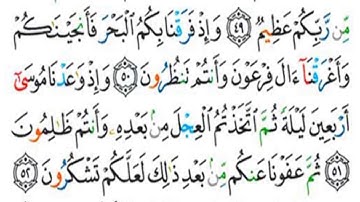 مِّن رَّبِّكُمْ عَظِيمٌ ٤٩ وَإِذْ فَرَقْنَا بِكُمُ ٱلْبَحْرَ فَأَنجَيْنَـٰكُمْ
وَأَغْرَقْنَآ ءَالَ فِرْعَوْنَ وَأَنتُمْ تَنظُرُونَ ٥٠ وَإِذْ وَٰعَدْنَا مُوسَىٰٓ
أَرْبَعِينَ لَيْلَةً ثُمَّ ٱتَّخَذْتُمُ ٱلْعِجْلَ مِنۢ بَعْدِهِۦ وَأَنتُمْ ظَـٰلِمُونَ
٥١ ثُمَّ عَفَوْنَا عَنكُم مِّنۢ بَعْدِ ذَٰلِكَ لَعَلَّكُمْ تَشْكُرُونَ ٥٢